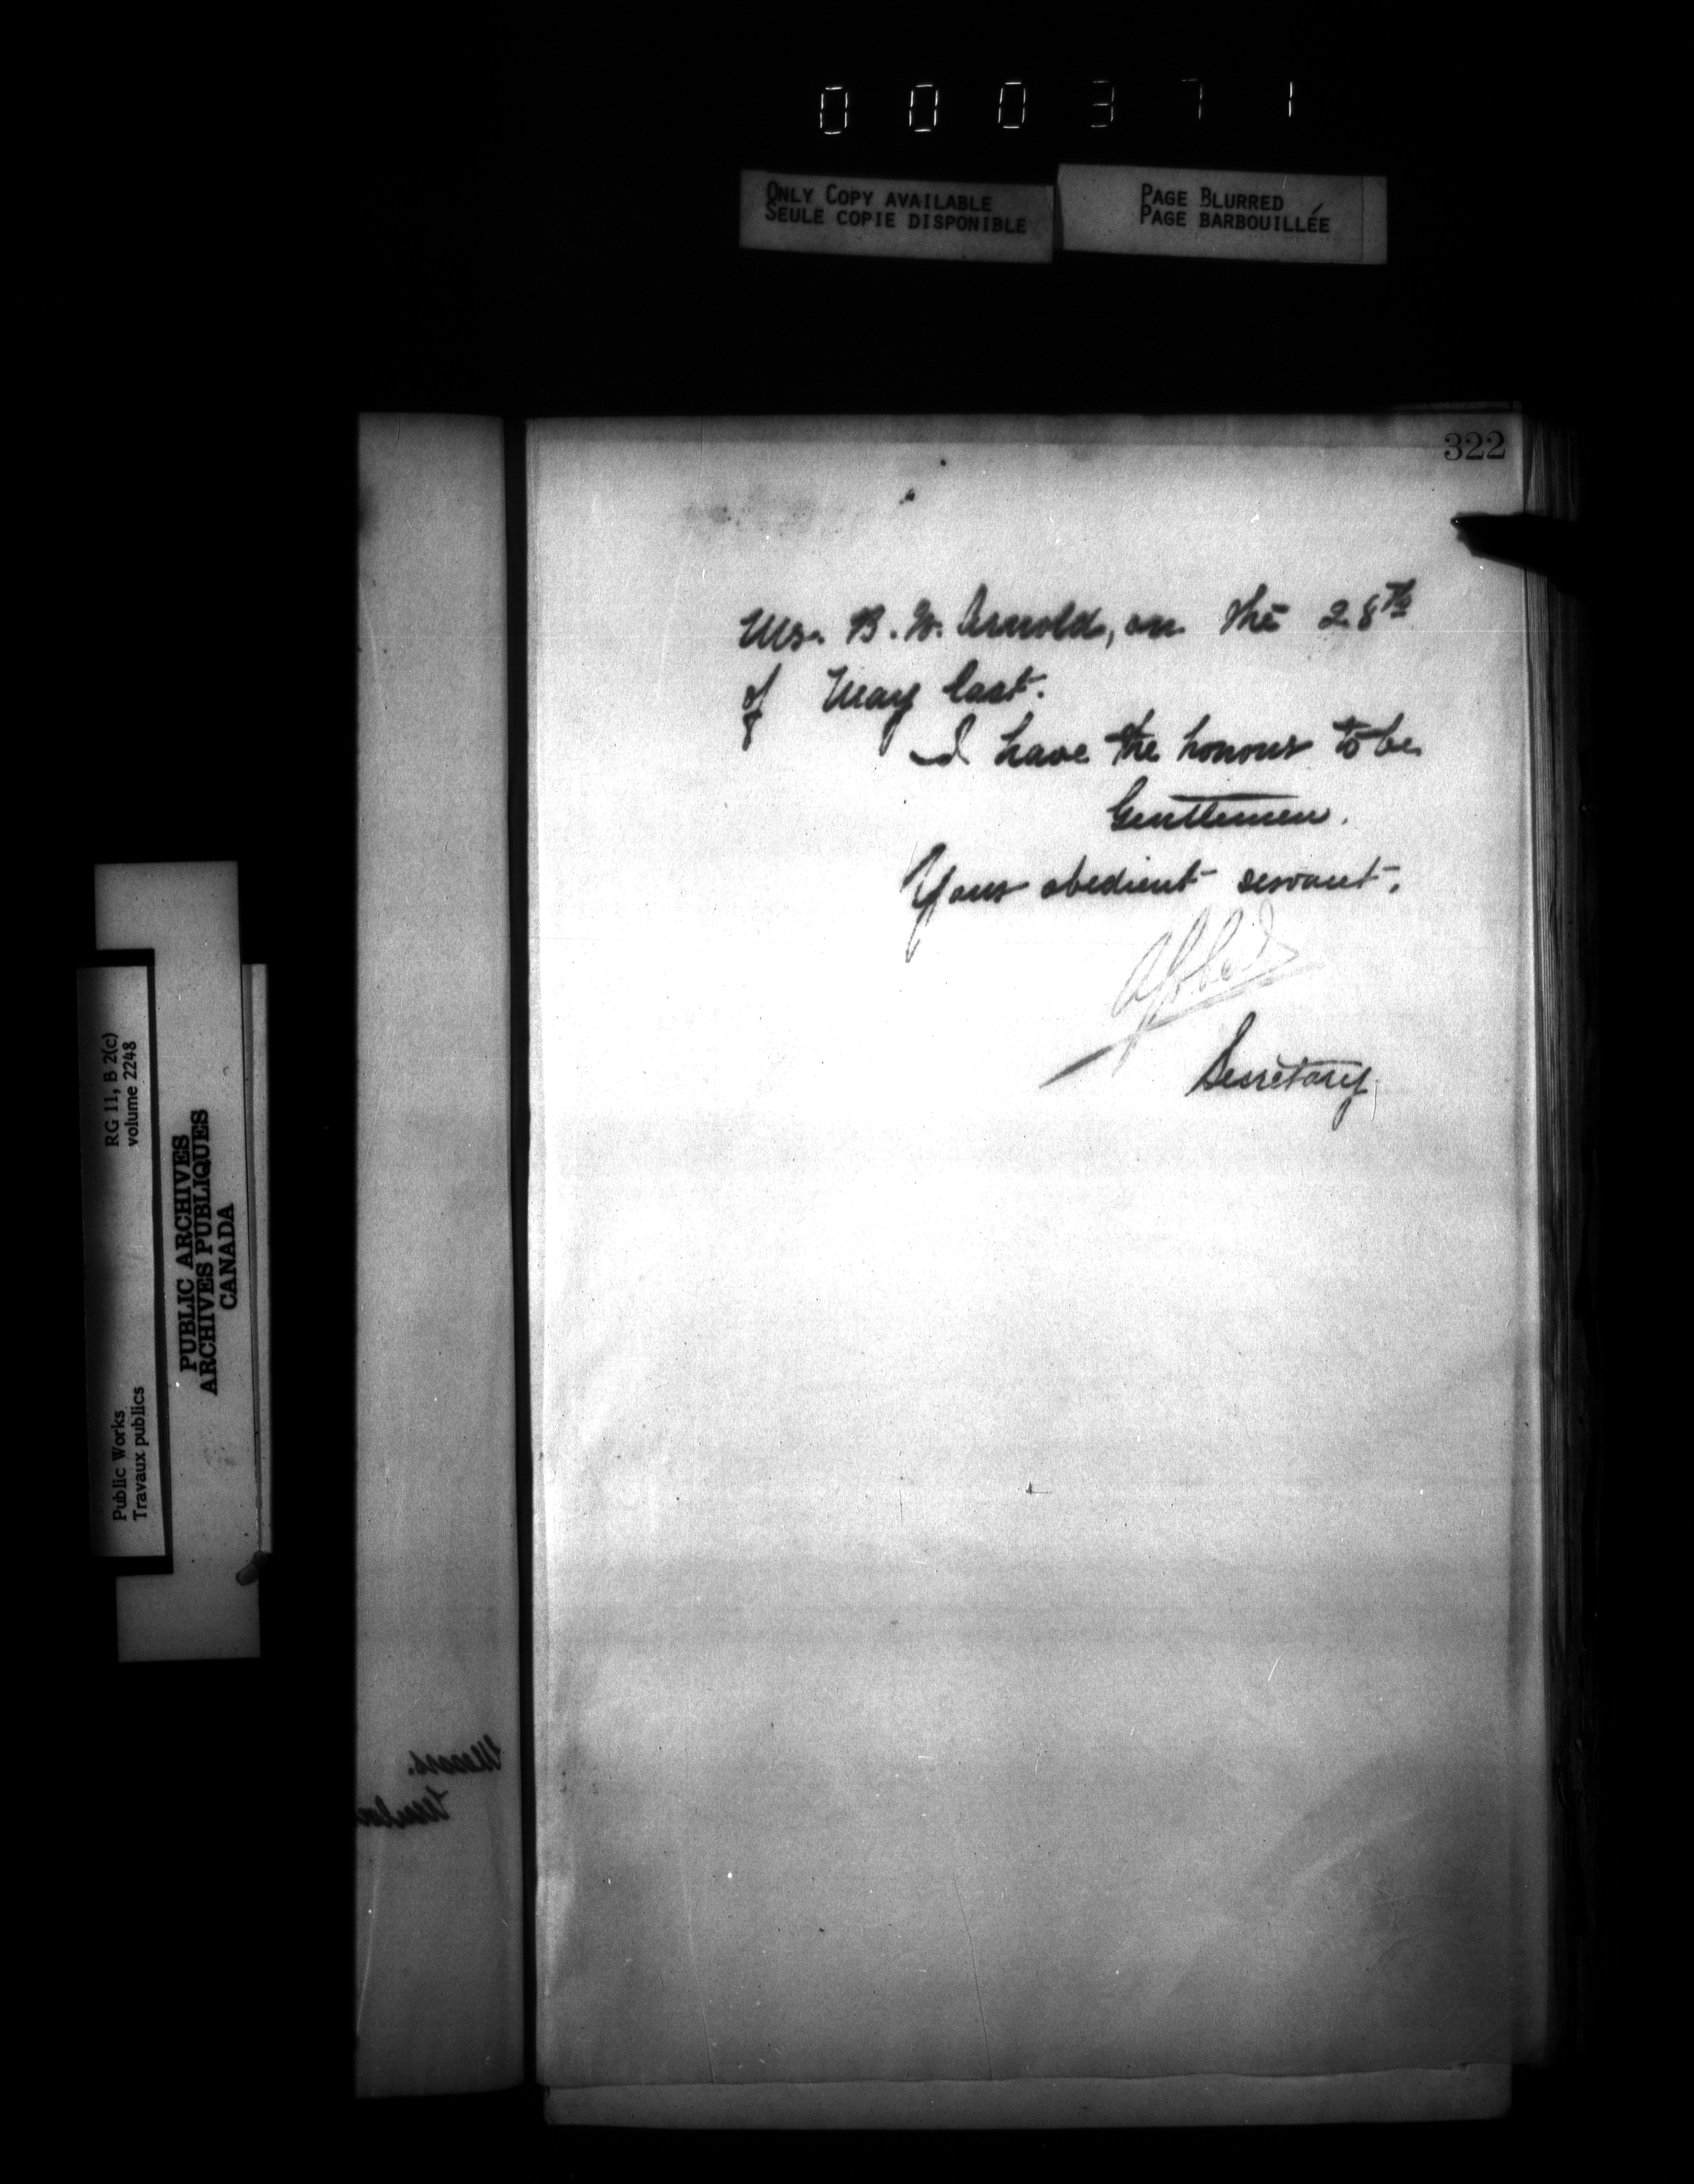 000371
ONLY COPY AVAILABLE
SEULE COPIE DISPONIBLE
PAGE BLURRED
PAGE BARBOUILLÉE
322
Mr. B. W. Arnold, on the 28th
of May last.
I have the honour to be
Gentlemen.
Your obedient servant.
Secretary
RG 11, B 2(c)
volume 2248
PUBLIC ARCHIVES
ARCHIVES PUBLIQUES
CANADA
Public Works
Travaux publics
Messrs.